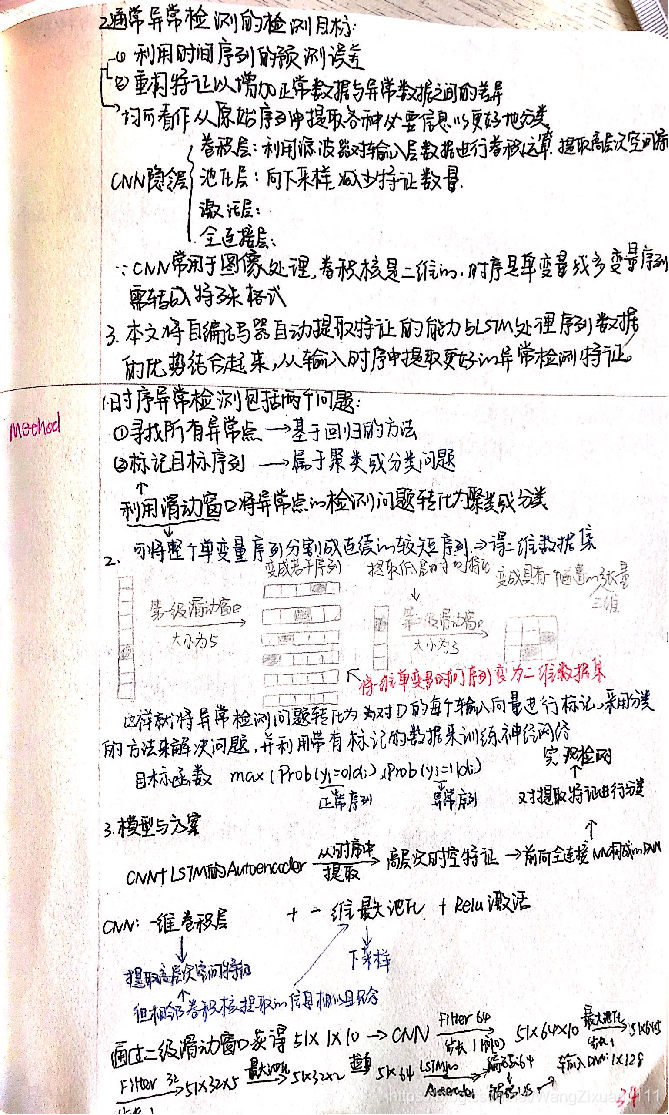 2.通常异常检测的检测目标:
① 利用时间序列的预测误差
② 重构特征以增加正常数据与异常数据之间的差异
均可看作从原始序列中提取各种必要信息以更好地分类
CNN隐含层
卷积层:利用滤波器对输入层数据进行卷积运算,提取高层次空间
池化层:向下采样,减少特征数量.
激活层:
全连接层:
∵CNN常用于图像处理,卷积核是二维的,时序是单变量或多变量序列
需转成特殊格式
3.本文将自编码器自动提取特征的能力与LSTM处理序列数据
的优势结合起来,从输入时序中提取更好的异常检测特征。
Method
1.时序异常检测包括两个问题:
①寻找所有异常点→基于回归的方法
②标记目标序列→属于聚类或分类问题
利用滑动窗口将异常点的检测问题转化为聚类或分类
2.可将整个单变量序列分割成连续的较短序列→得二维数据集
变成若干序列
第一级滑动窗口
大小为5
第二级滑动窗口
大小为3
变成具有 的张量
三维
将 单变量时间序列变为二维数据集
这样就将异常检测问题转化为为对D的每个输入向量进行标记,采用分类
的方法来解决问题,并利用带有标记的数据来训练神经网络
目标函数 max(Prob(yi=0|di),Prob(yi=1|di)
正常序列 异常序列
完成检测
对提取特征进行分类
3.模型与方案
CNN+LSTM的Autoencoder 从时序中提取→高层次时空特征→前向全连接NN构成的DNN
CNN:一维卷积层 + 一维最大池化 + Relu激活
下采样
提取高层次空间特征
但相邻卷积核提取的信息相似且冗余
通过二级滑动窗口获得51X1X10→CNN Filter 64 51X64X10 最大池化 51X64X5
Filter 32 51X32X5 最大池化 51X32X2 51X64 LSTM Autoencoder 编码64 输入DNN:1X128
24